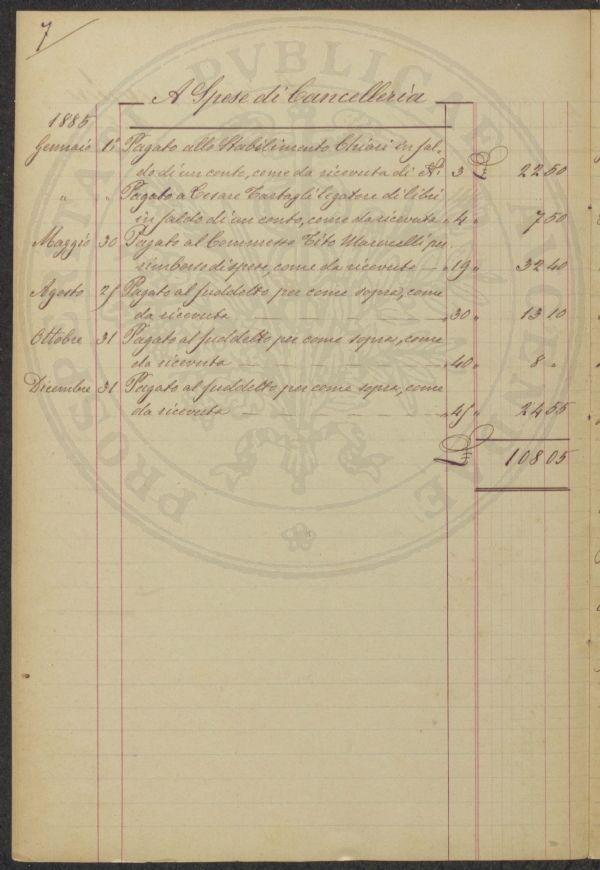 7
A Spese di Cancelleria
1885
Gennaio 1° Pagato allo Stabilimento Chiari in sal-
do di un conto, come da ricevuta di N. 3 L 22 50
" " Pagato a Cesare Tartagli legatore di libri
in saldo di un conto, come da ricevuta " 4 " 7 50
Maggio 30 Pagato al Commesso Tito Marucelli per
rimborso di spese, come da ricevuta — " 19 " 32 40
Agosto 25 Pagato al suddetto per come sopra, come
da ricevuta — — — — — " 30 " 13 10
Ottobre 31 Pagato al suddetto per come sopra, come
da ricevuta — — — — — " 40 " 8 "
Dicembre 31 Pagato al suddetto per come sopra, come
da ricevuta — — — — — " 45 " 24 55
L 108 05
PROSPERITATI PVBLICAE